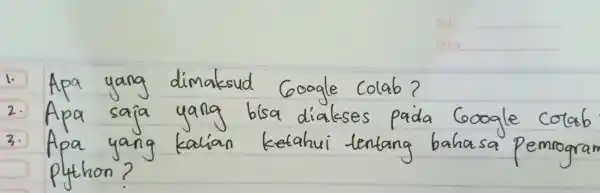 1. Apa yang dimaksud Google Colab?
2. Apa saja yang bisa diakses pada Google colab
3. Apa yang kalian ketahui tentang bahasa Pemrogram
Python?